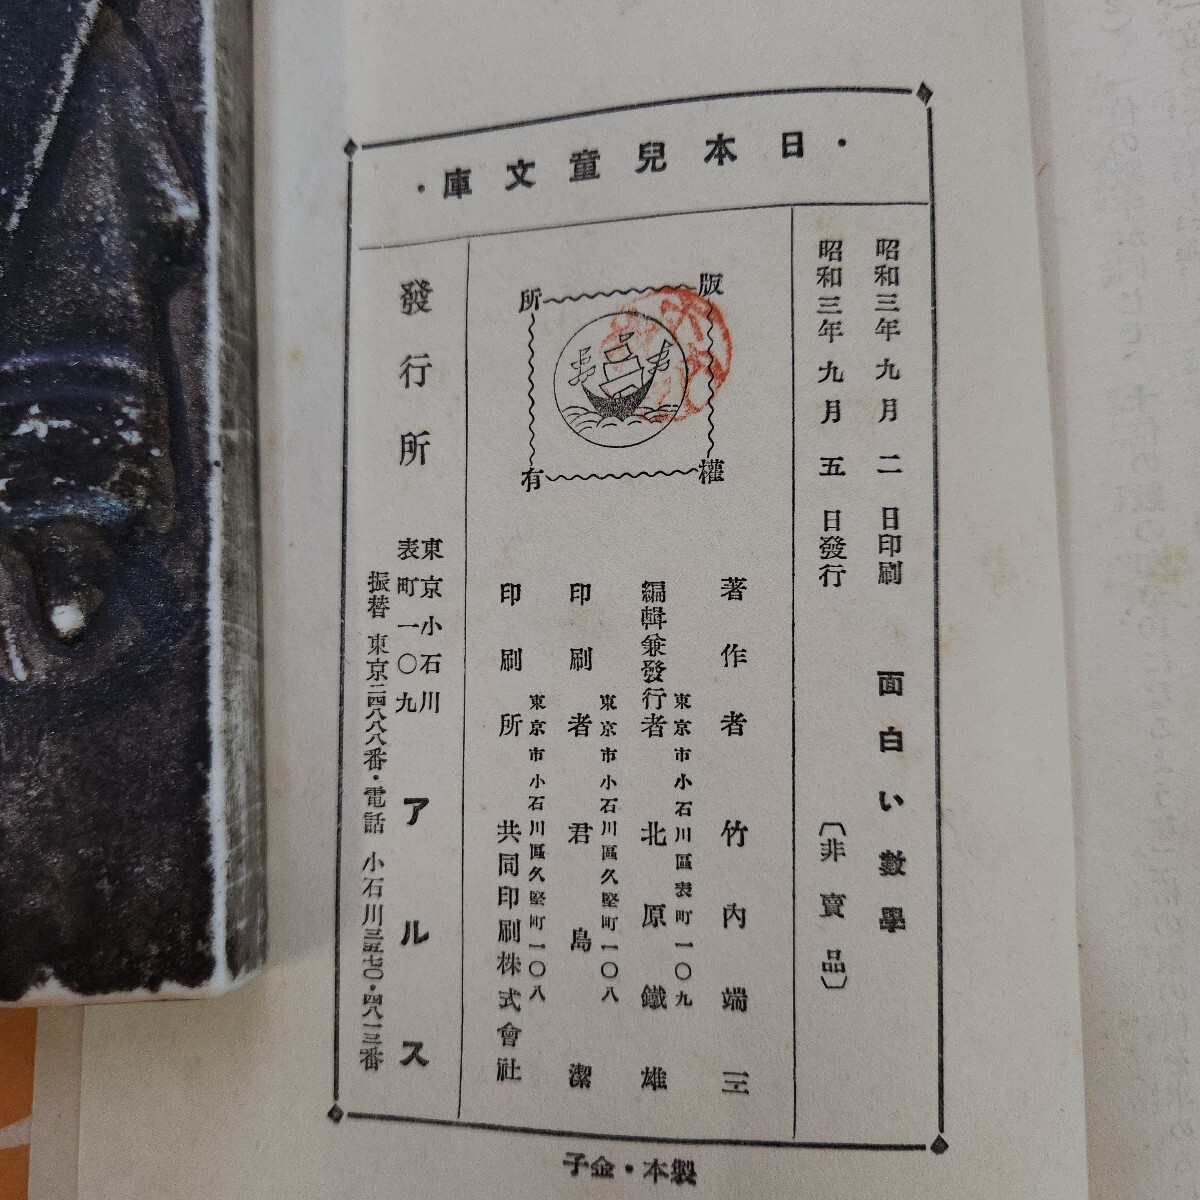 ・日本兒童文庫・
昭和三年九月二日印刷
昭和三年九月五日發行
面白い數學
〔非賣品〕
版權所有
著作者 竹內端三
東京市小石川區表町一〇九
編輯兼發行者 北原鐵雄
東京市小石川區久堅町一〇八
印刷者 君島潔
東京市小石川區久堅町一〇八
印刷所 共同印刷株式會社
發行所
東京小石川
表町一〇九
アルス
振替 東京二四八八八番・電話 小石川三五七〇・四八一三番
製本・金子